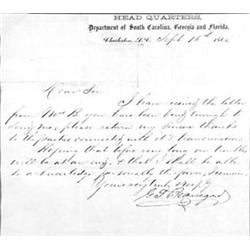 HEAD QUARTERS,
Department of South Carolina, Georgia and Florida.
Charleston, S.C. Sept 16th 1862
Dear Sir
I have received the letter
from Mr B. you have been kind enough to
send me, please return my sincere thanks
to the parties connected with its transmission
Hoping that before very long our troubles
will be all over, & that I shall be able
to acknowledge personally the favor, I remain
Yours very truly
G. T. Beauregard